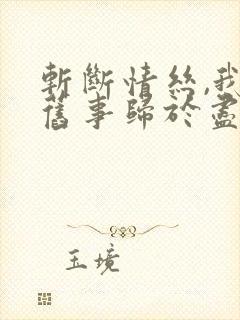 斬斷情絲,我
舊事歸於盡
玉境